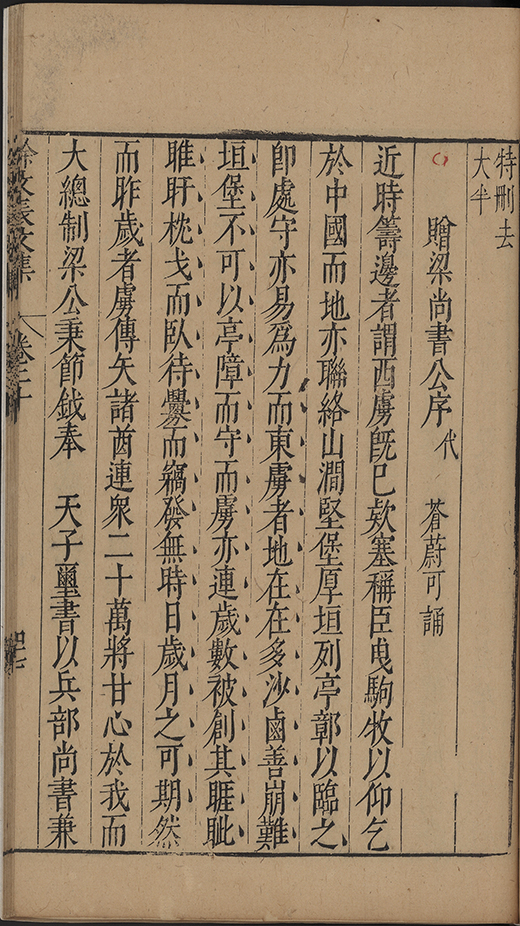 特刪去
大半
贈梁尚書公序 代 蒼蔚可誦
近時籌邊者謂西虜既已欵塞稱臣曵駒牧以仰乞
於中國而地亦聯絡山澗堅堡厚垣列亭鄣以臨之
即處守亦易爲力而東虜者地在在多沙鹵善崩難
垣堡不可以亭障而守而虜亦連歲數被創其睚眦
睢盱枕戈而臥待釁而竊發無時日歲月之可期然
而昨歲者虜傳矢諸酋連衆二十萬將甘心於我而
大總制梁公秉節鉞奉 天子璽書以兵部尚書兼
徐文長文集 卷二十